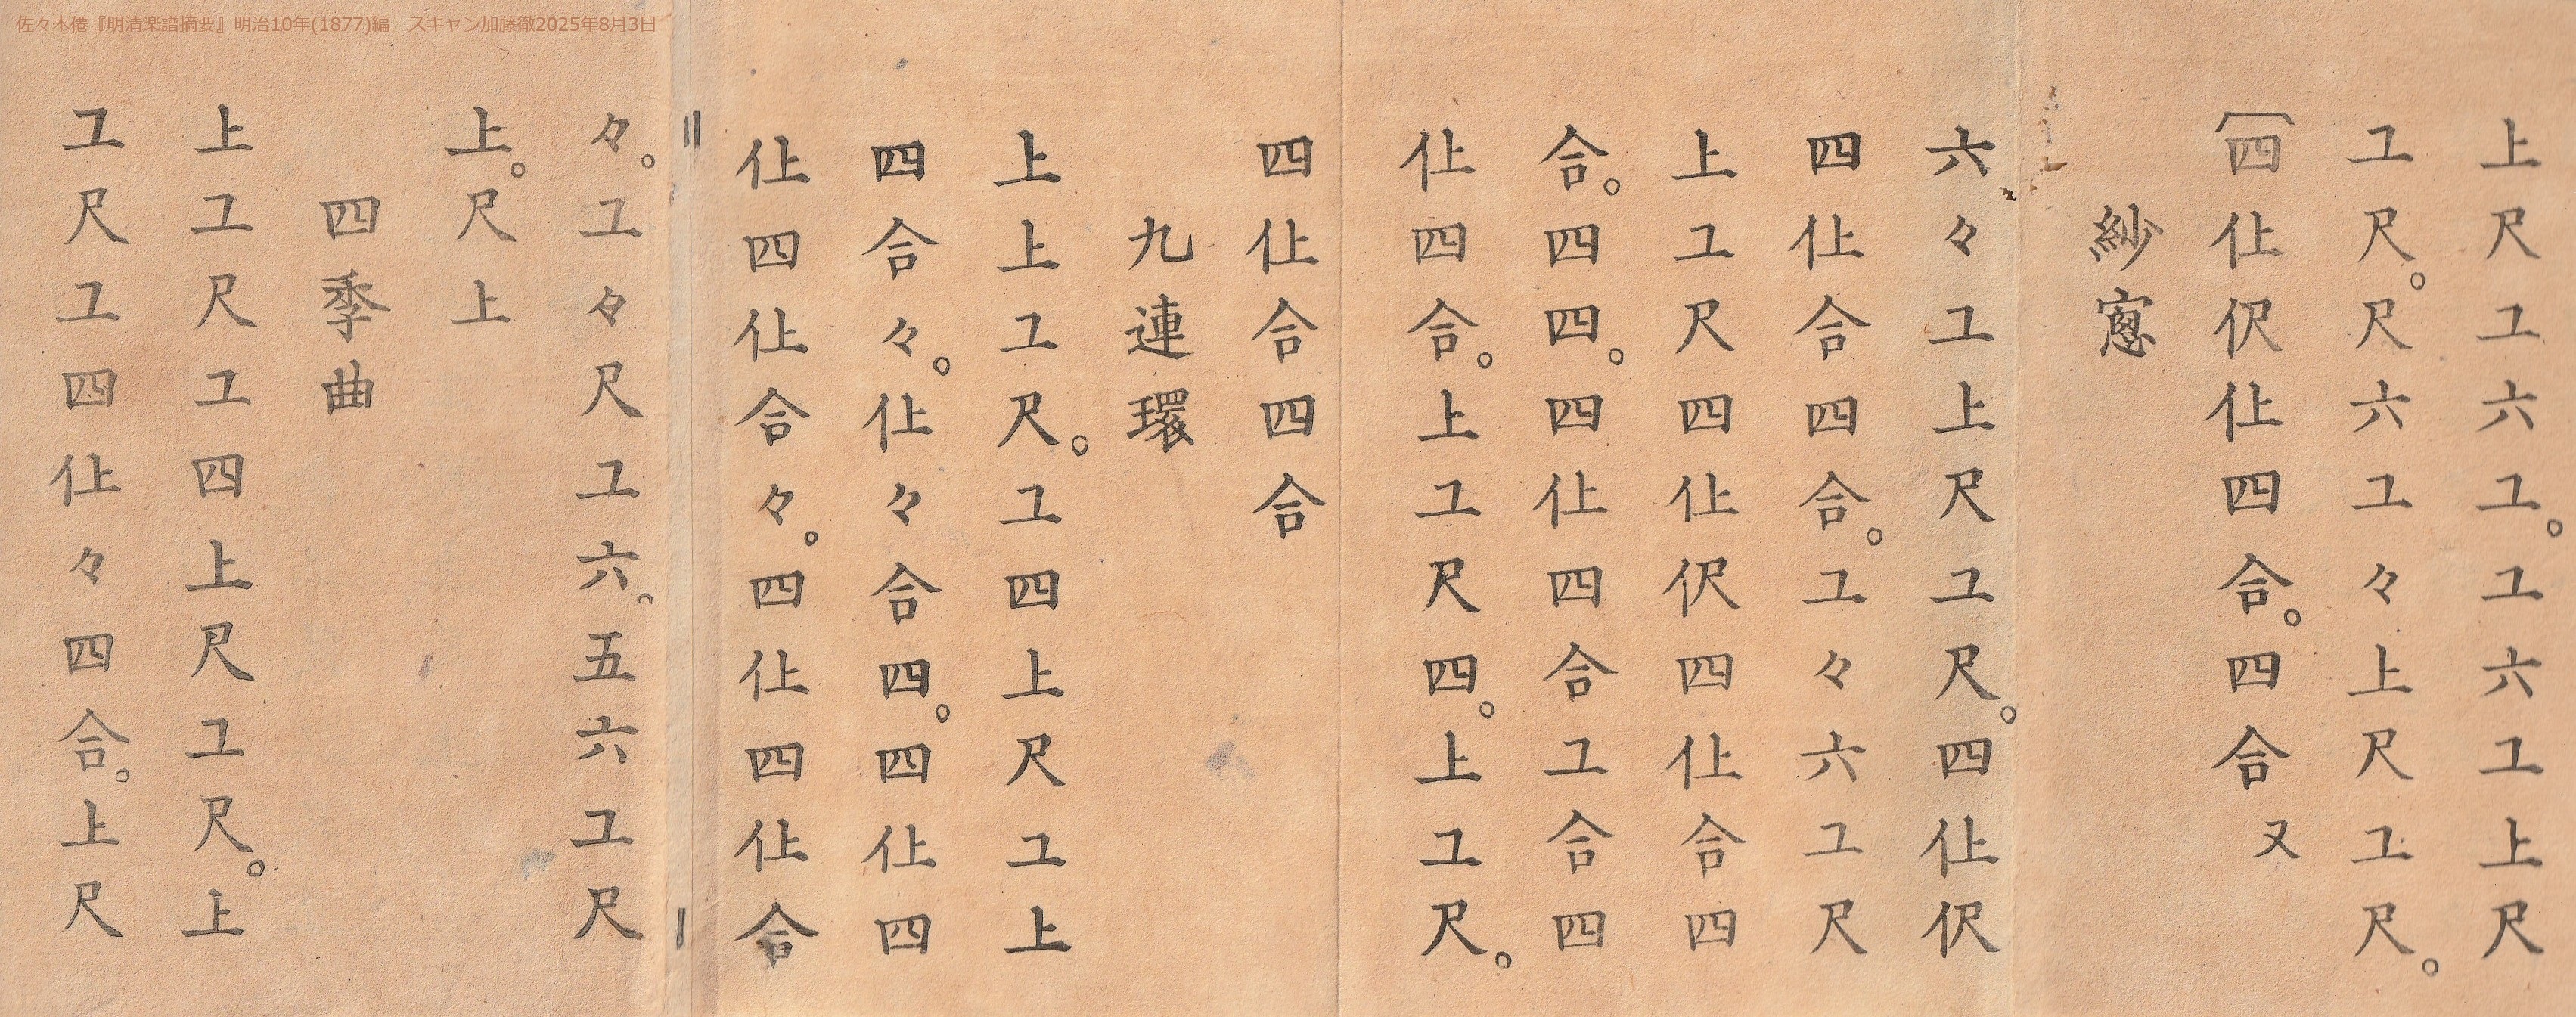 佐々木僊『明清楽譜摘要』明治10年(1877)編　スキャン加藤徹2025年8月3日
上尺工六工。工六工上尺
工尺。尺六工々上尺工尺。
四仩伬仩四合。四合又
紗窓
六々工上尺工尺。四仩伬
四仩合四合。工々六工尺
上工尺四仩伬四仩合四
合。四四。四仩四合工合四
仩四合。上工尺四。上工尺。
四仩合四合
九連環
上上工尺。工四上尺工上
四合々。仩々合四。四仩四
仩四仩合々。四仩四仩合
々。工々尺工六。五六工尺
上。尺上
四季曲
上工尺工四上尺工尺。上
工尺工四仩々四合。上尺